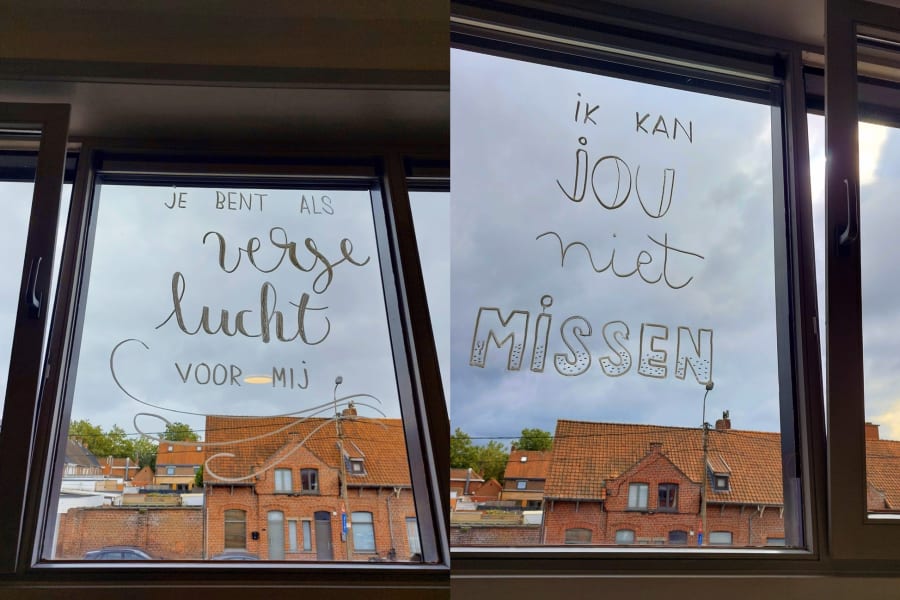 JE BENT ALS
verse
lucht
VOOR MIJ
iK KAN
jOU
niet
MiSSEN